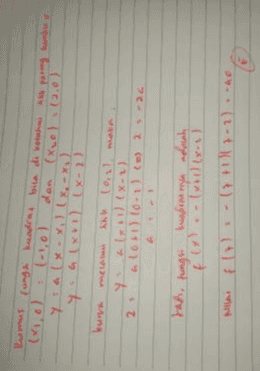 Rumus fungsi kuadrat bila diketahui ttk potong sumbu x
(x₁,0) = (-1,0) dan (x₂,0) = (2,0)
y = a (x - x₁) (x - x₂)
y = a (x+1) (x-2)
kurva melalui ttk (0,2), maka
y = a (x+1) (x-2)
2 = a (0+1) (0-2) ⇔ 2 = -2a
a = -1
Jadi, fungsi kuadratnya adalah
f(x) = -(x+1)(x-2)
Nilai f(7) = -(7+1)(7-2) = -40